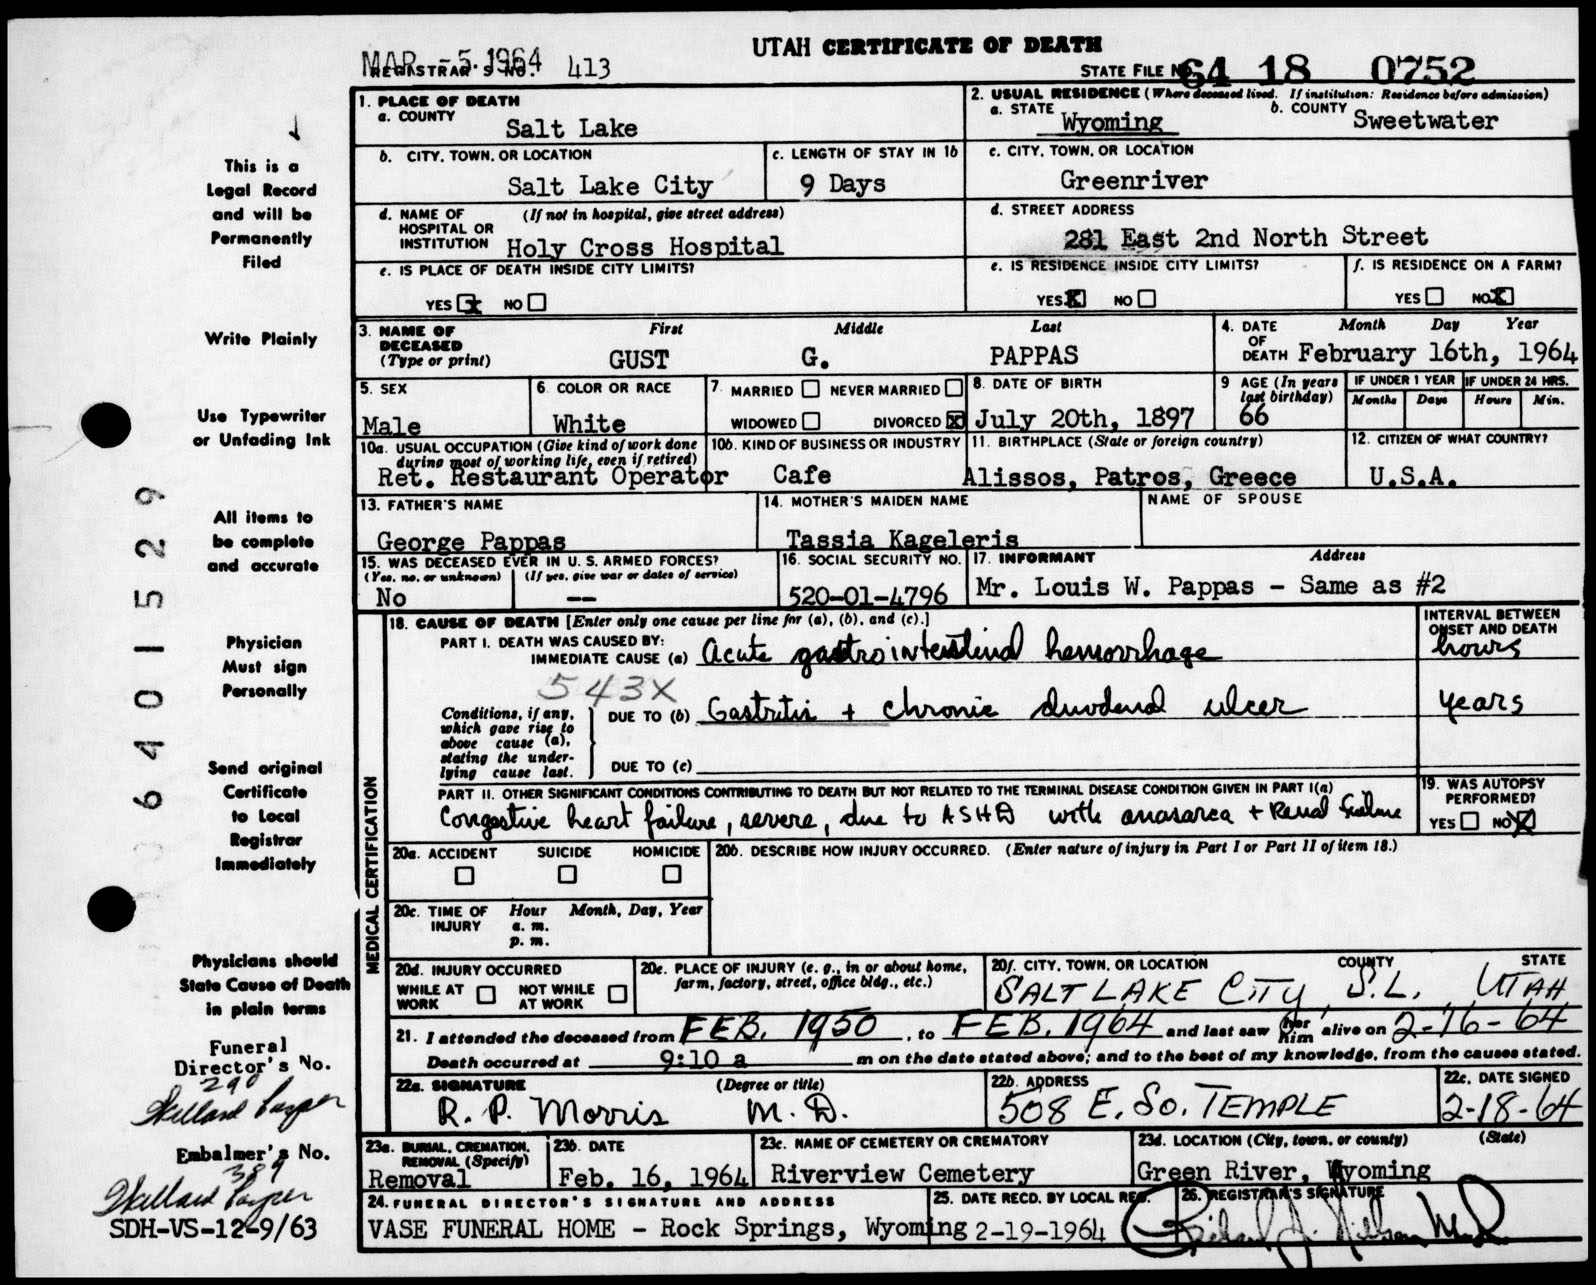 UTAH CERTIFICATE OF DEATH
MAR - 5. 1964
REGISTRAR'S NO. 413
STATE FILE NO. 64 18 0752
1. PLACE OF DEATH
a. COUNTY
Salt Lake
2. USUAL RESIDENCE (Where deceased lived. If institution: Residence before admission)
a. STATE Wyoming b. COUNTY Sweetwater
b. CITY, TOWN, OR LOCATION
Salt Lake City
c. LENGTH OF STAY IN 1b
9 Days
c. CITY, TOWN, OR LOCATION
Greenriver
d. NAME OF HOSPITAL OR INSTITUTION (If not in hospital, give street address)
Holy Cross Hospital
d. STREET ADDRESS
281 East 2nd North Street
e. IS PLACE OF DEATH INSIDE CITY LIMITS?
YES x NO
e. IS RESIDENCE INSIDE CITY LIMITS?
YES X NO
f. IS RESIDENCE ON A FARM?
YES NO X
3. NAME OF DECEASED (Type or print)
First Middle Last
GUST G. PAPPAS
4. DATE OF DEATH Month Day Year
February 16th, 1964
5. SEX
Male
6. COLOR OR RACE
White
7. MARRIED NEVER MARRIED
WIDOWED DIVORCED X
8. DATE OF BIRTH
July 20th, 1897
9 AGE (In years last birthday)
66
IF UNDER 1 YEAR
Months Days
IF UNDER 24 HRS.
Hours Min.
10a. USUAL OCCUPATION (Give kind of work done during most of working life, even if retired)
Ret. Restaurant Operator
10b. KIND OF BUSINESS OR INDUSTRY
Cafe
11. BIRTHPLACE (State or foreign country)
Alissos, Patros, Greece
12. CITIZEN OF WHAT COUNTRY?
U.S.A.
13. FATHER'S NAME
George Pappas
14. MOTHER'S MAIDEN NAME
Tassia Kageleris
NAME OF SPOUSE
15. WAS DECEASED EVER IN U.S. ARMED FORCES?
(Yes, no, or unknown) (If yes, give war or dates of service)
No --
16. SOCIAL SECURITY NO.
520-01-4796
17. INFORMANT Address
Mr. Louis W. Pappas - Same as #2
MEDICAL CERTIFICATION
18. CAUSE OF DEATH [Enter only one cause per line for (a), (b), and (c).]
INTERVAL BETWEEN ONSET AND DEATH
PART I. DEATH WAS CAUSED BY:
IMMEDIATE CAUSE (a) Acute gastrointestinal hemorrhage hours
543X
Conditions, if any, which gave rise to above cause (a), stating the underlying cause last.
DUE TO (b) Gastritis + chronic duodenal ulcer years
DUE TO (c)
PART II. OTHER SIGNIFICANT CONDITIONS CONTRIBUTING TO DEATH BUT NOT RELATED TO THE TERMINAL DISEASE CONDITION GIVEN IN PART I(a)
Congestive heart failure, severe, due to ASHD with anasarca + Renal failure
19. WAS AUTOPSY PERFORMED?
YES NO X
20a. ACCIDENT SUICIDE HOMICIDE
20b. DESCRIBE HOW INJURY OCCURRED. (Enter nature of injury in Part I or Part II of item 18.)
20c. TIME OF INJURY Hour Month, Day, Year
a. m.
p. m.
20d. INJURY OCCURRED
WHILE AT WORK NOT WHILE AT WORK
20e. PLACE OF INJURY (e. g., in or about home, farm, factory, street, office bldg., etc.)
20f. CITY, TOWN, OR LOCATION COUNTY STATE
SALT LAKE CITY, S.L., UTAH
21. I attended the deceased from FEB. 1950, to FEB. 1964 and last saw her him alive on 2-16-64
Death occurred at 9:10 a m on the date stated above; and to the best of my knowledge, from the causes stated.
22a. SIGNATURE (Degree or title)
R. P. Morris M.D.
22b. ADDRESS
508 E. So. TEMPLE
22c. DATE SIGNED
2-18-64
23a. BURIAL, CREMATION, REMOVAL (Specify)
Removal
23b. DATE
Feb. 16, 1964
23c. NAME OF CEMETERY OR CREMATORY
Riverview Cemetery
23d. LOCATION (City, town, or county) (State)
Green River, Wyoming
24. FUNERAL DIRECTOR'S SIGNATURE AND ADDRESS
VASE FUNERAL HOME - Rock Springs, Wyoming
25. DATE RECD. BY LOCAL REG.
2-19-1964
26. REGISTRAR'S SIGNATURE
This is a
Legal Record
and will be
Permanently
Filed
Write Plainly
Use Typewriter
or Unfading Ink
All items to
be complete
and accurate
Physician
Must sign
Personally
Send original
Certificate
to Local
Registrar
Immediately
Physicians should
State Cause of Death
in plain terms
Funeral
Director's No.
290
Willard
Embalmer's No.
389
Willard
SDH-VS-12-9/63
6401529